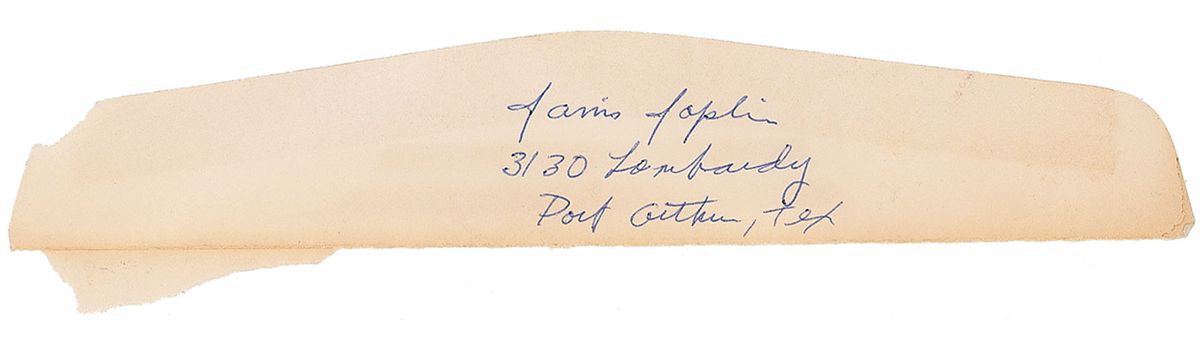 Janis Joplin
3130 Lombardy
Port Arthur, Tex